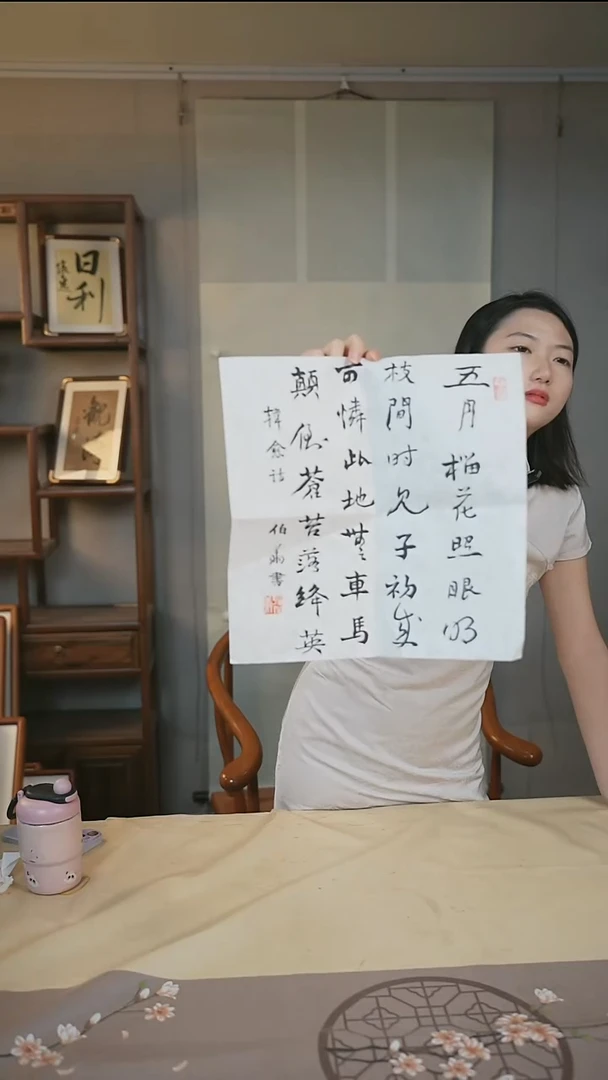 五月榴花照眼明
枝間时見子初成
可憐此地無車馬
顛倒蒼苔落絳英
韓愈诗
伯 書
日利